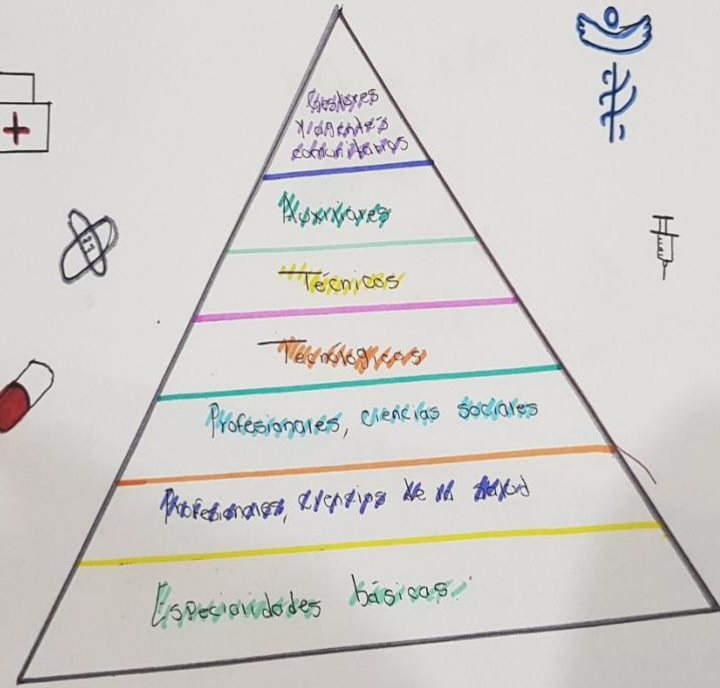 Gestores
y agentes
comunitarios
Auxiliares
Técnicos
Tecnológicos
Profesionales, ciencias sociales
Profesionales, ciencias de la salud
Especialidades básicas